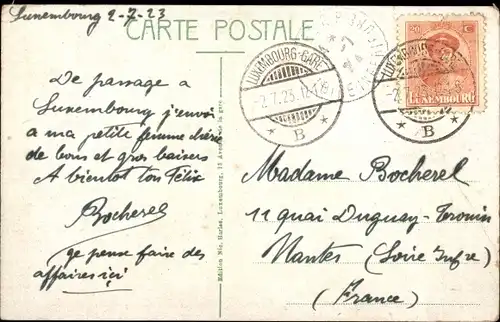 Luxembourg 2-7-23
CARTE POSTALE
LUXEMBOURG-GARE
-2.7.23.
* B *
20 C
LUXEMBOURG
* B *
De passage a
Luxembourg j'envoi
a ma petite femme chérie
de bons et gros baisers
A bientot ton Félix
Bocherel
je pense faire des
affaires ici
Edition Nic. Gurles, Luxembourg, 12 Avenue de la gare.
Madame Bocherel
11 quai Duguay-Trouin
Nantes (Loire Infre)
(France)